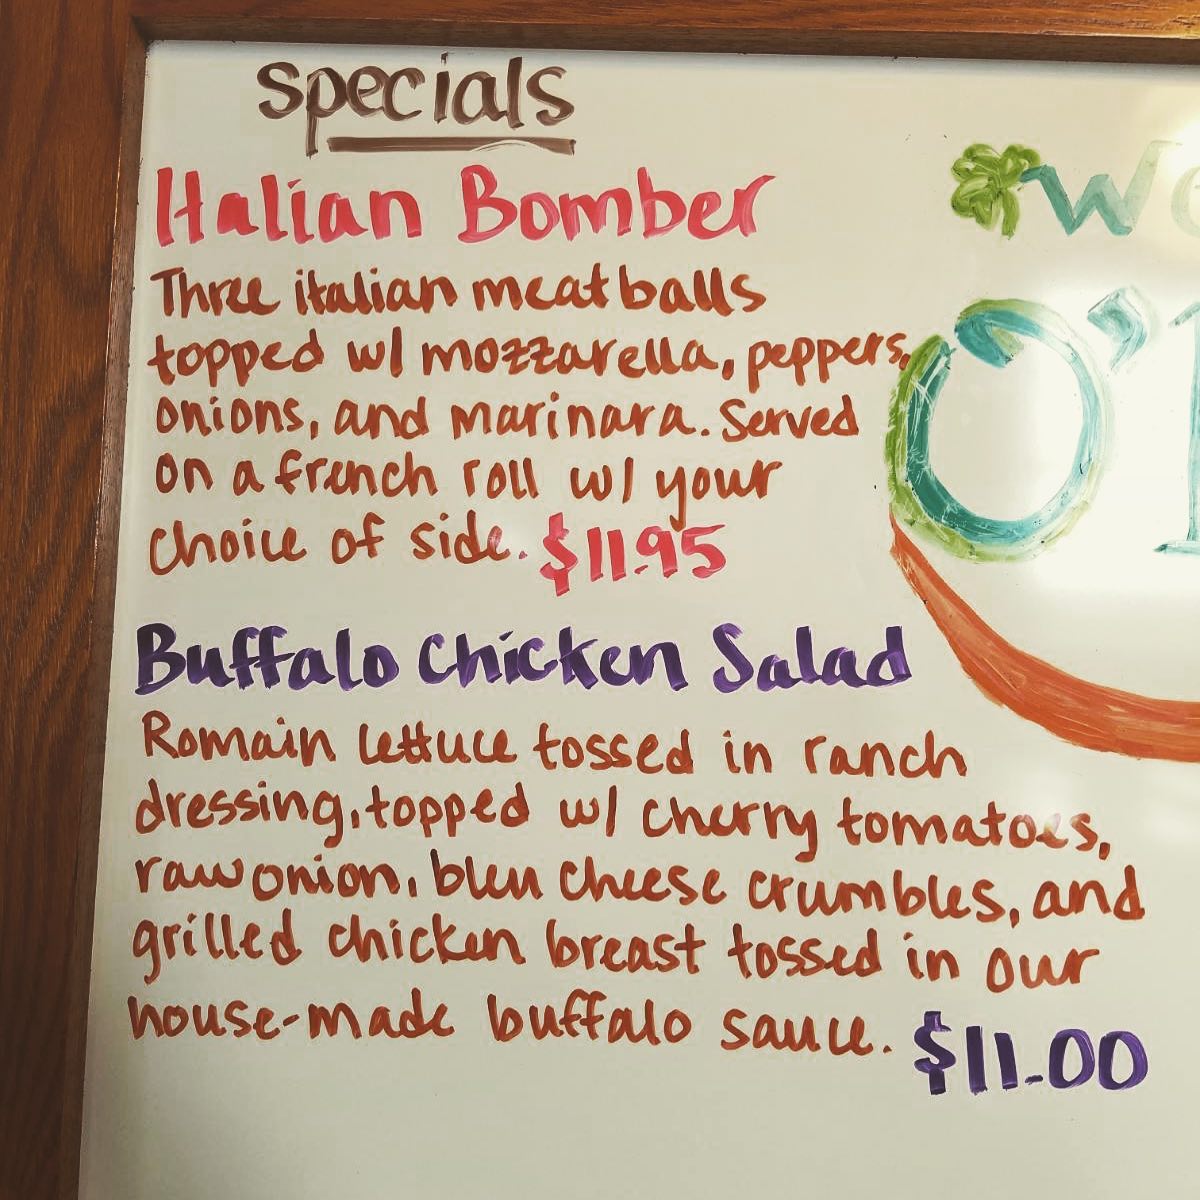 Specials
Italian Bomber
Three italian meatballs
topped w/ mozzarella, peppers,
onions, and marinara. Served
on a french roll w/ your
choice of side. $11.95
Buffalo Chicken Salad
Romain lettuce tossed in ranch
dressing, topped w/ cherry tomatoes,
raw onion, bleu cheese crumbles, and
grilled chicken breast tossed in our
house-made buffalo sauce. $11.00
O'